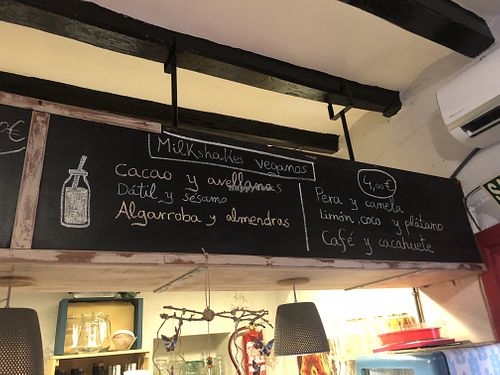 0€
Milkshakes veganos
4,00€
Cacao y avellanas
Dátil y sésamo
Algarroba y almendras
Pera y canela
limón, coco y plátano
Café y cacahuete